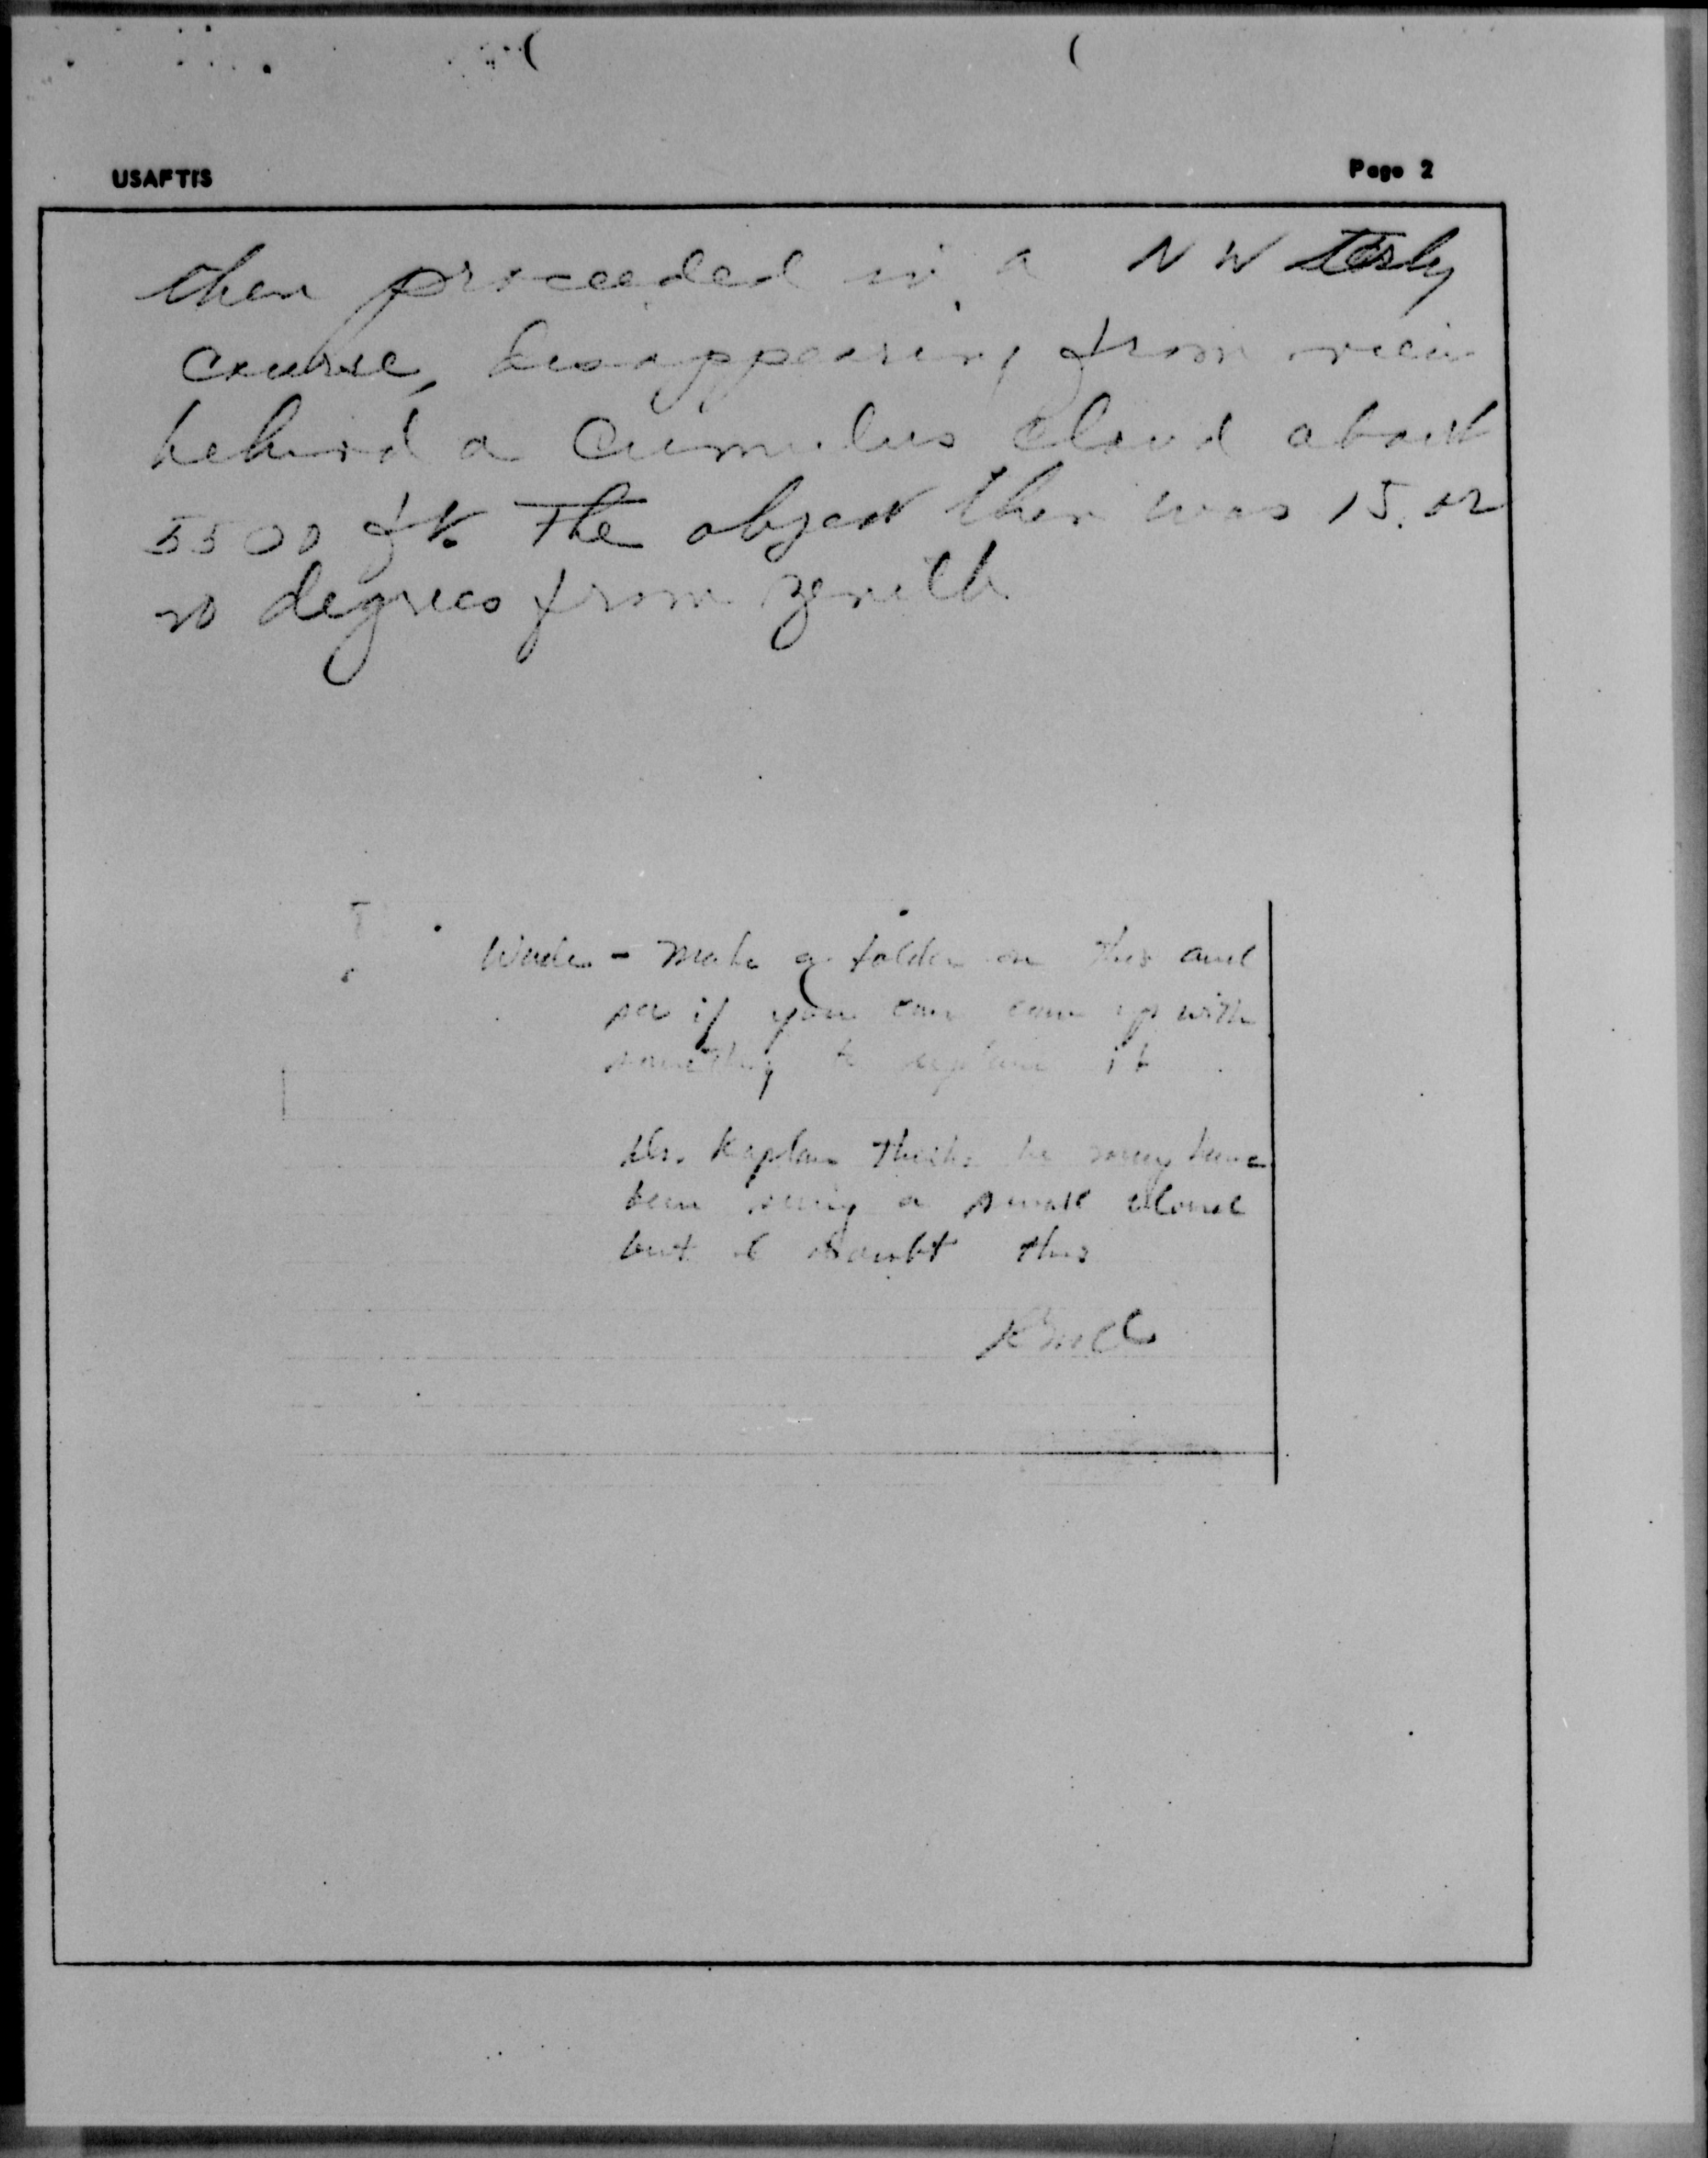 USAFTIS
Page 2
then proceeded in a NW terly
course, disappearing from view
behind a cumulus cloud about
5500 ft. The object then was 15 or
20 degrees from zenith
Wade - Make a folder on this and
see if you can come up with
something to explain it
Dr. Kaplan thinks he may have
been seeing a small cloud
but I doubt this